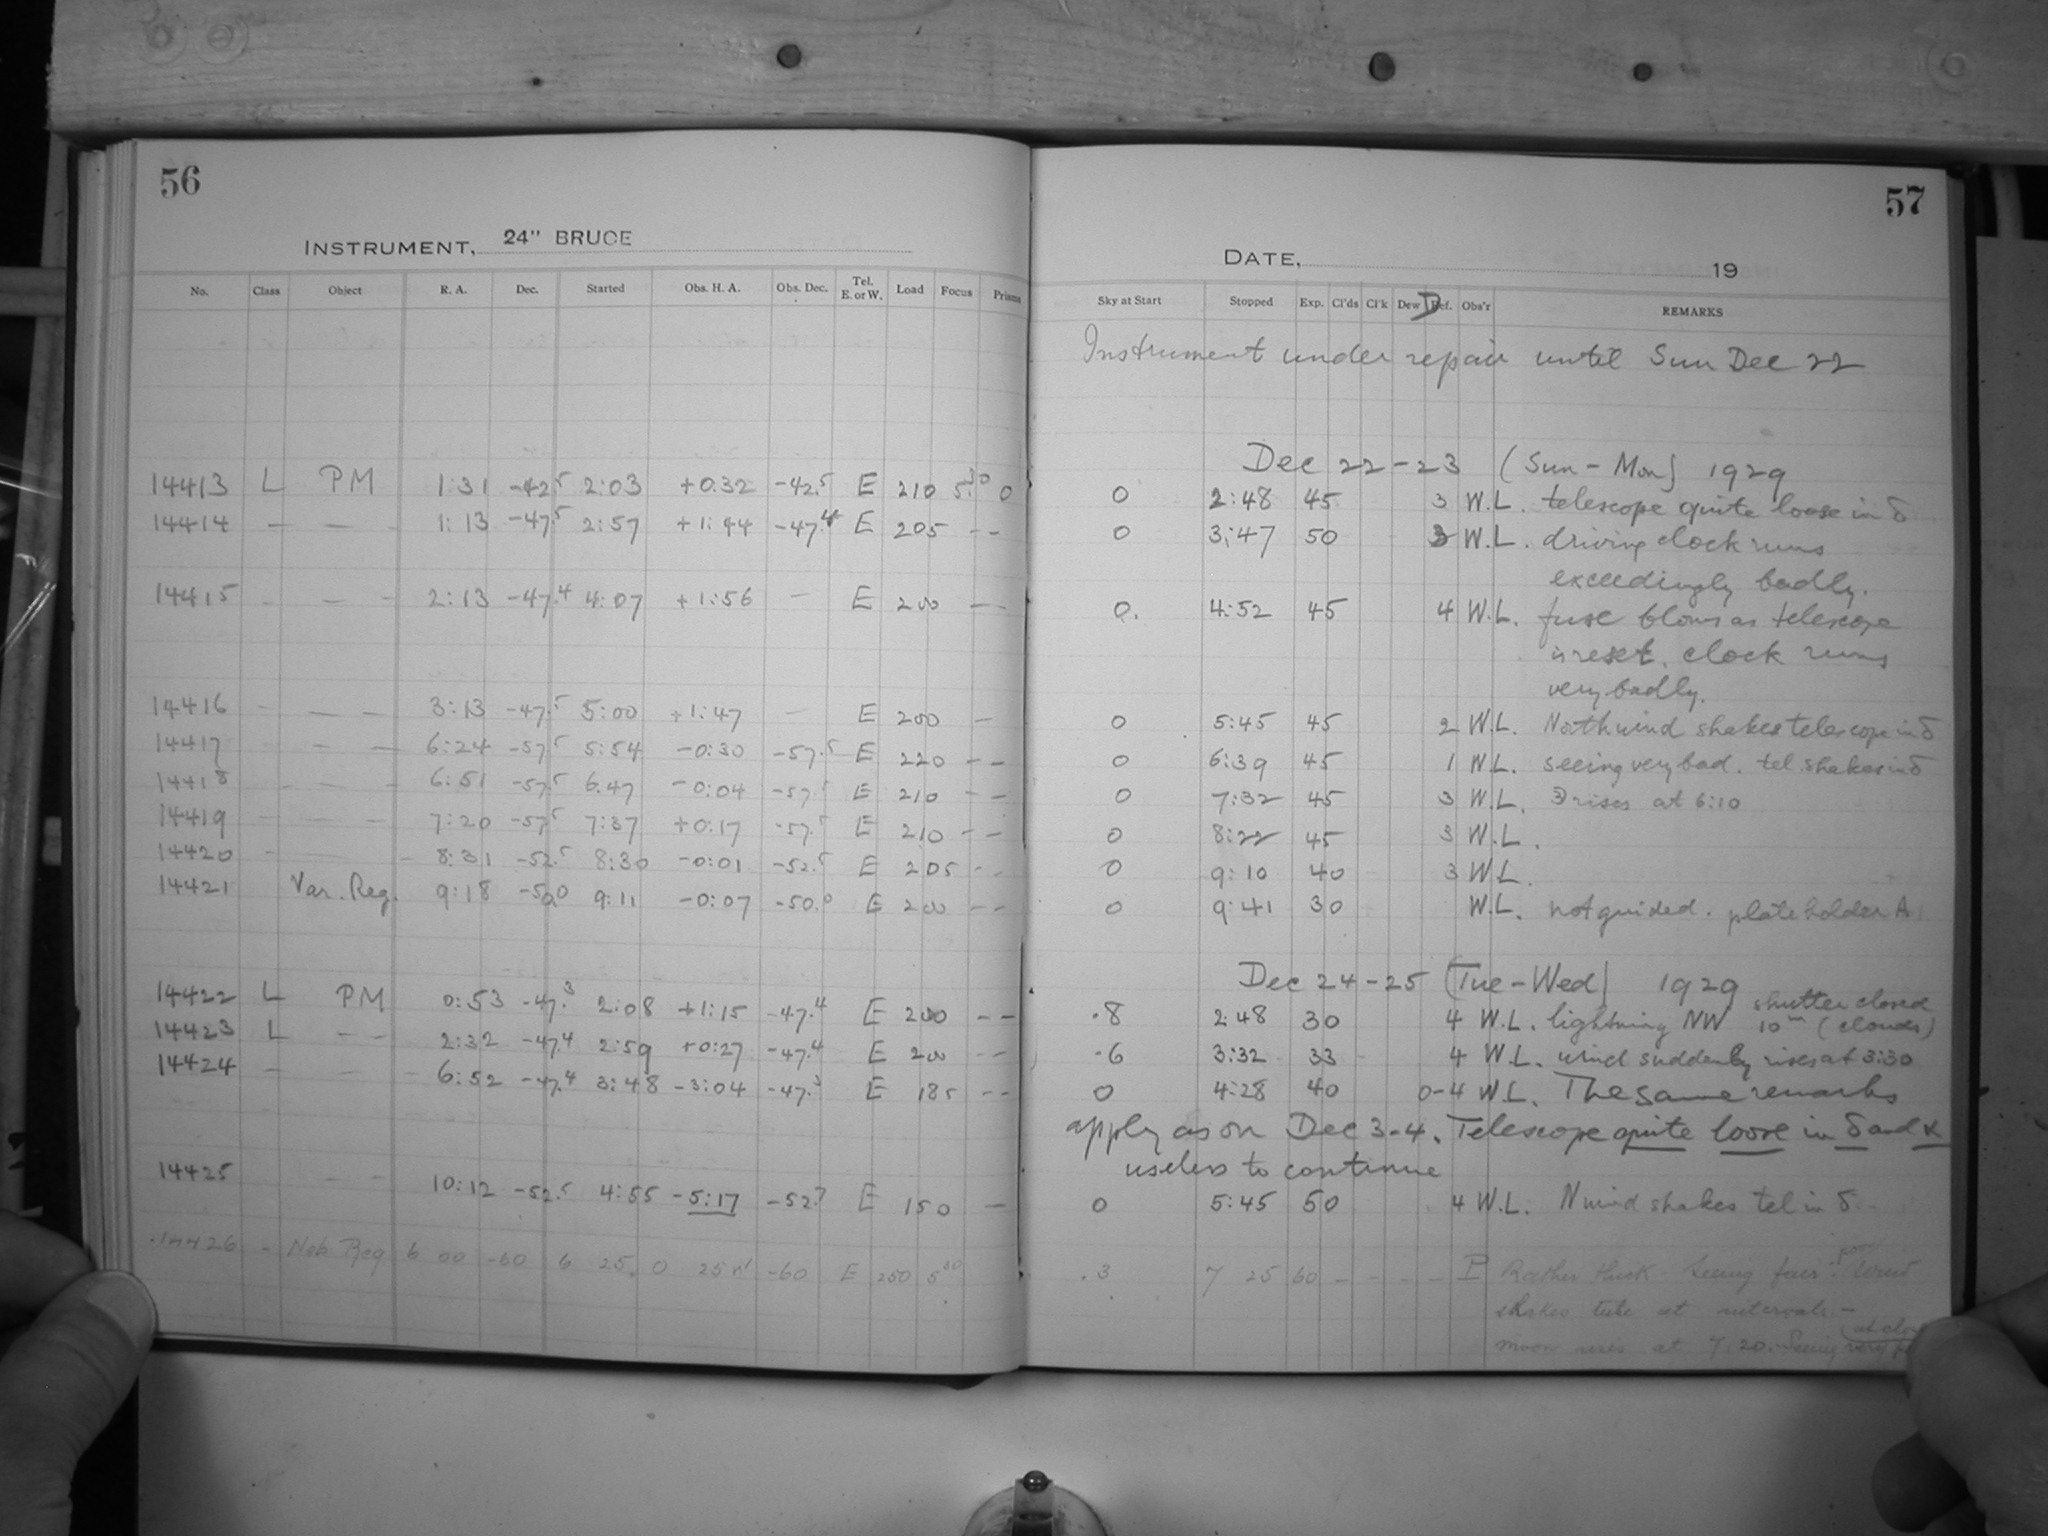 56
INSTRUMENT, 24" BRUCE
No. Class Object R. A. Dec. Started Obs. H. A. Obs. Dec. Tel. E. or W. Load Focus Prisms
14413 L PM 1:31 -42.5 2:03 +0:32 -42.5 E 210 5.30 0
14414 — — 1:13 -47.5 2:57 +1:44 -47.4 E 205 - -
14415 - — - 2:13 -47.4 4:07 +1:56 — E 200 —
14416 - — - 3:13 -47.5 5:00 +1:47 — E 200 —
14417 - - — 6:24 -57.5 5:54 -0:30 -57.5 E 220 - -
14418 - - — 6:51 -57.5 6.47 -0:04 -57.5 E 210 - -
14419 - - — 7:20 -57.5 7:37 +0:17 -57.5 E 210 - -
14420 - — - 8:31 -52.5 8:30 -0:01 -52.5 E 205 - -
14421 Var. Reg. 9:18 -50.0 9:11 -0:07 -50.0 E 200 - -
14422 L PM 0:53 -47.3 2:08 +1:15 -47.4 E 200 - -
14423 L - - 2:32 -47.4 2:59 +0:27 -47.4 E 200 - -
14424 - - - 6:52 -47.4 3:48 -3:04 -47.3 E 185 - -
14425 - - 10:12 -52.5 4:55 -5:17 -52.7 E 150 —
14426 - Neb Reg 6 00 -60 6 25. 0 25 W -60 E 250 5.30
57
DATE, 19
Sky at Start Stopped Exp. Cl'ds Cl'k Dew D Ref. Obs'r REMARKS
Instrument under repair until Sun Dec 22
Dec 22-23 (Sun-Mon) 1929
0 2:48 45 3 W.L. telescope quite loose in δ
0 3:47 50 3 W.L. driving clock runs
exceedingly badly.
0. 4:52 45 4 W.L. fuse blows as telescope
is reset. clock runs
very badly.
0 5:45 45 2 W.L. North wind shakes telescope in δ
0 6:39 45 1 W.L. seeing very bad. tel. shakes in δ
0 7:32 45 3 W.L. ☽ rises at 6:10
0 8:22 45 3 W.L.
0 9:10 40 3 W.L.
0 9:41 30 W.L. not guided. plate holder A
Dec 24-25 (Tue-Wed) 1929
shutter closed
.8 2:48 30 4 W.L. lightning NW 10m (clouds)
.6 3:32 33 4 W.L. wind suddenly rises at 3:30
0 4:28 40 0-4 W.L. The same remarks
apply as on Dec 3-4. Telescope quite loose in δ and α
useless to continue
0 5:45 50 4 W.L. N wind shakes tel in δ
.3 7 25 60 - - - - P Rather thick - Seeing fair - poor Wind
shakes tube at intervals. -
moon rises at 7.20. Seeing very